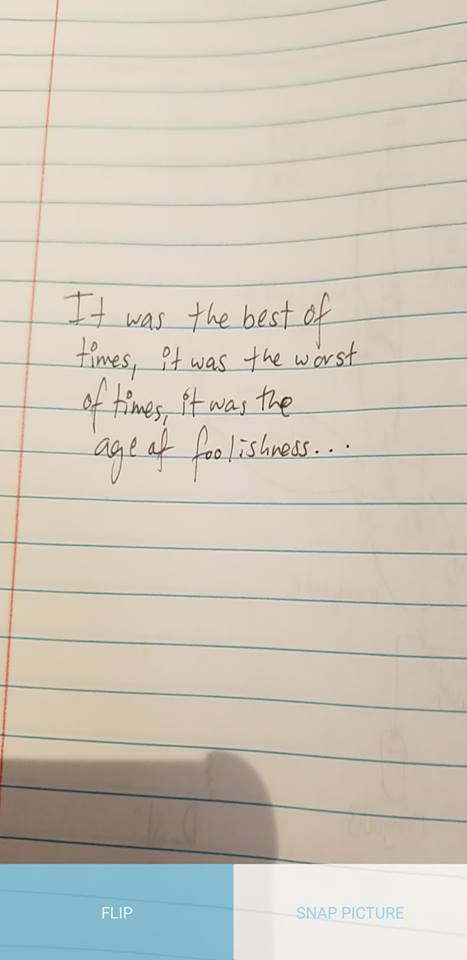 It was the best of
times, it was the worst
of times, it was the
age of foolishness...
FLIP
SNAP PICTURE